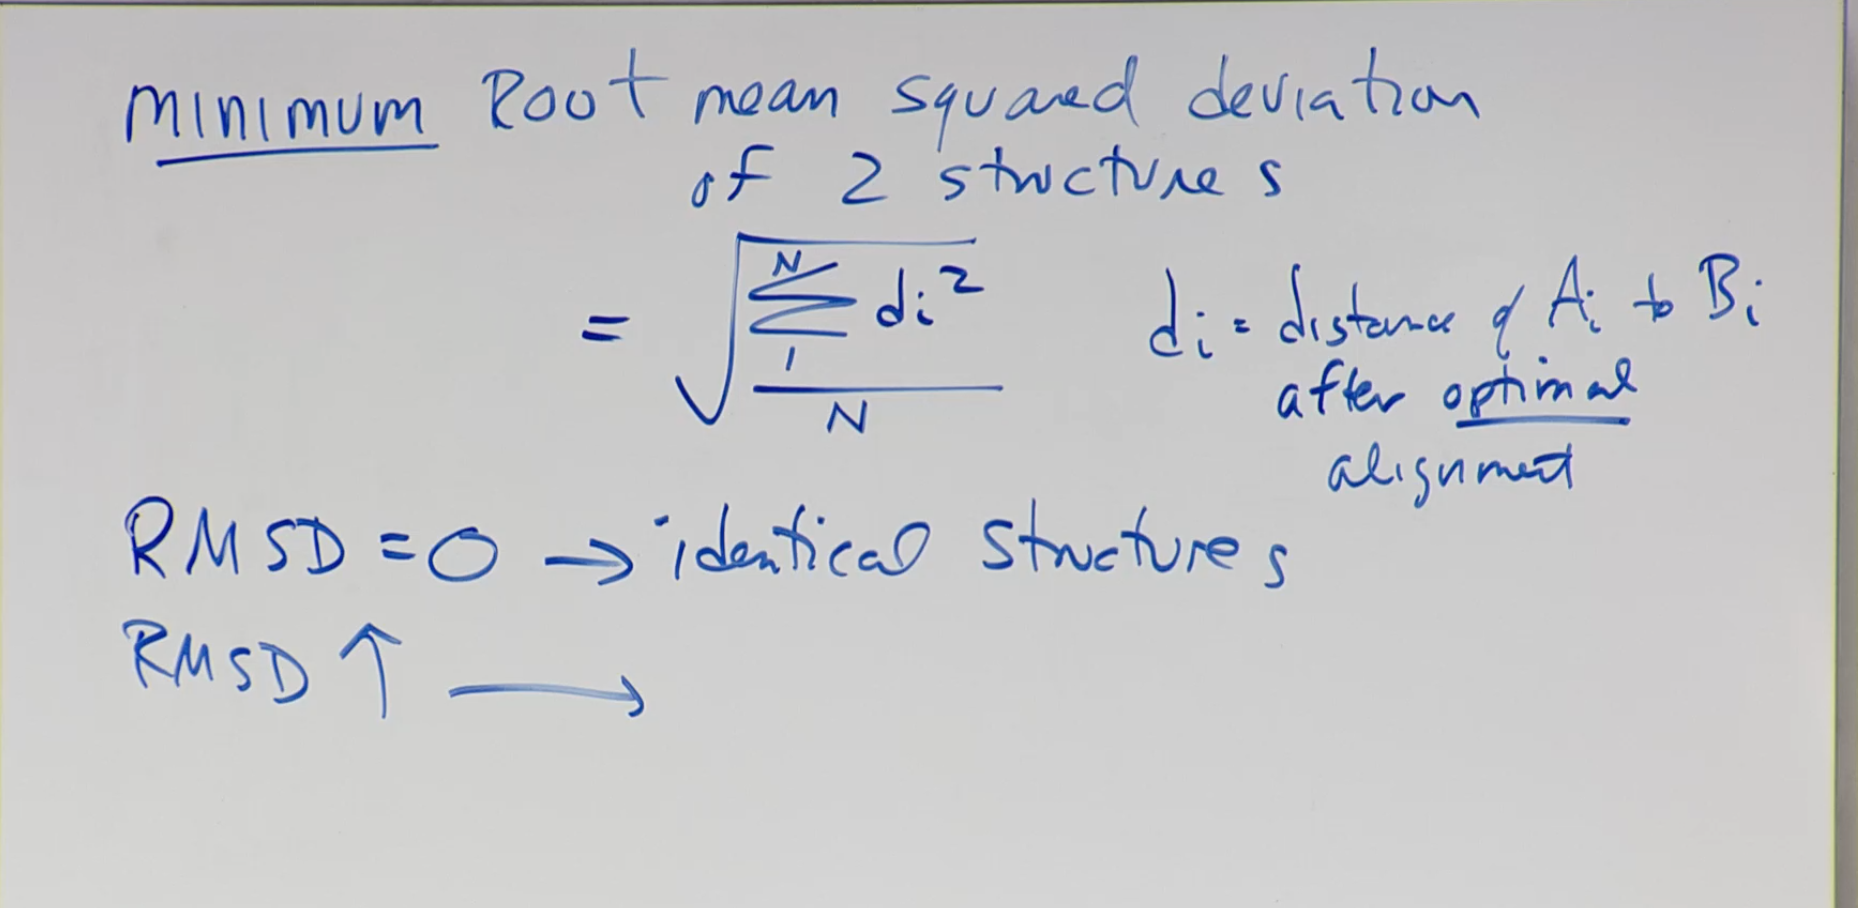 MINIMUM Root mean squared deviation
of 2 structures
= √(∑₁ᴺ di² / N)
di = distance of Ai to Bi
after optimal
alignment
RMSD = 0 → identical structures
RMSD ↑ →